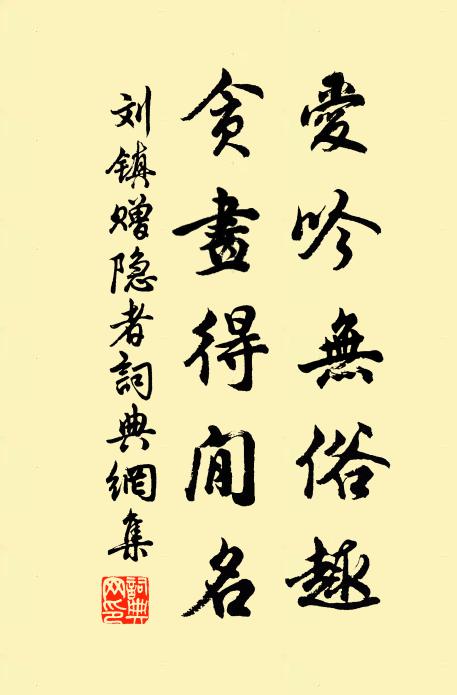 愛吟無俗趣
貪畫得閒名
刘镇赠隐者詞典網集
詞典網印